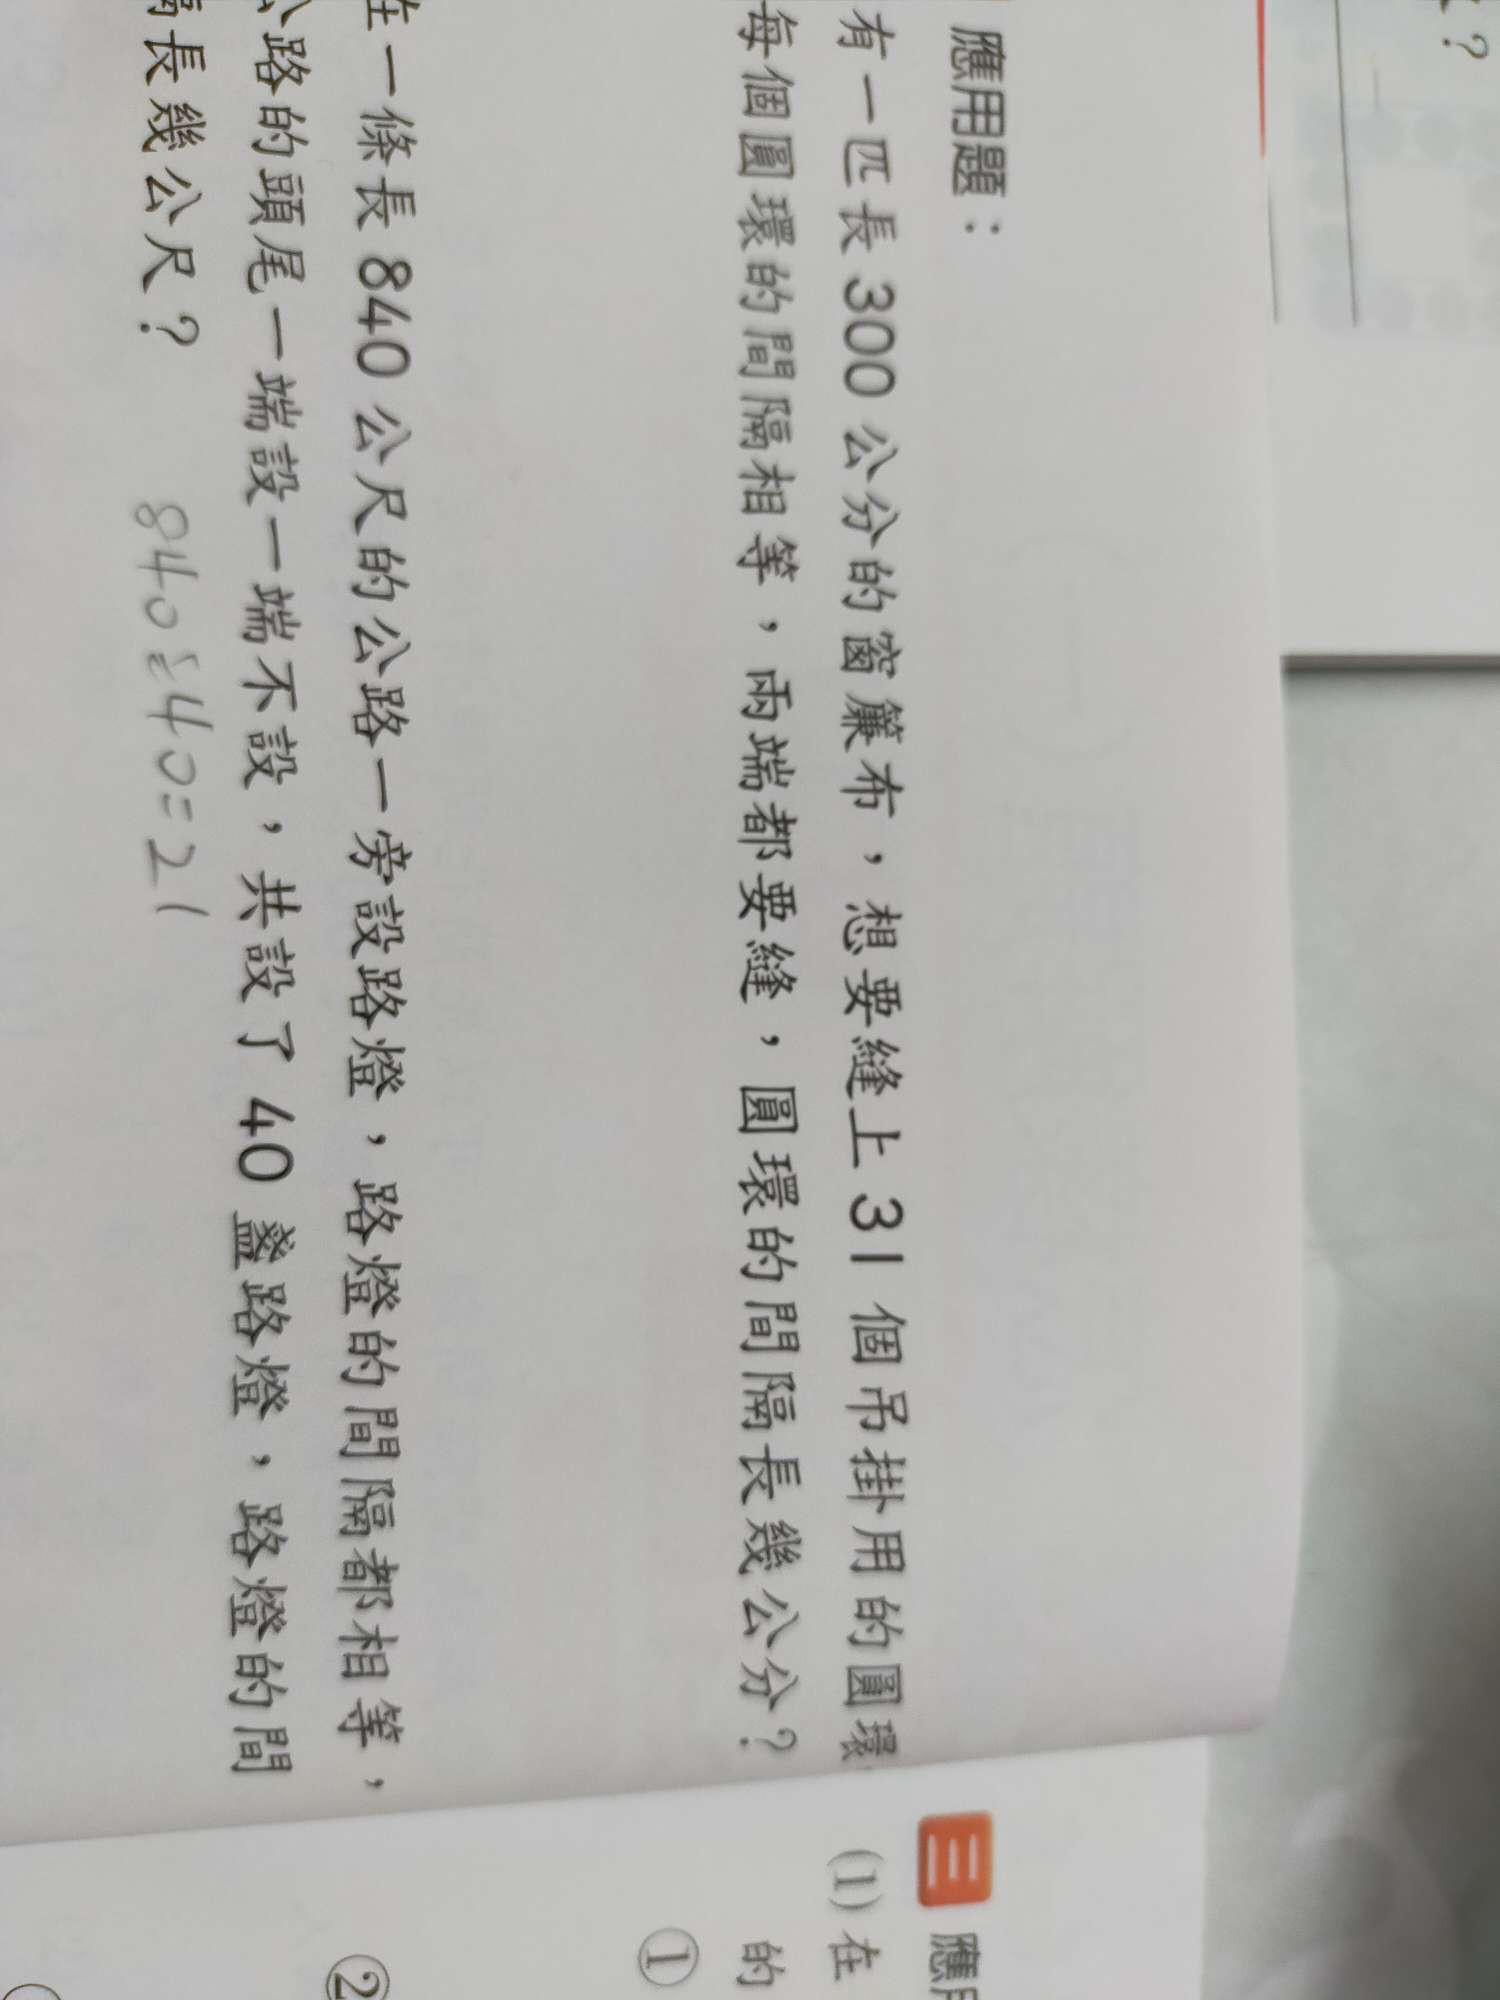 應用題：
有一匹長 300 公分的窗簾布，想要縫上 31 個吊掛用的圓環
每個圓環的間隔相等，兩端都要縫，圓環的間隔長幾公分？
在一條長 840 公尺的公路一旁設路燈，路燈的間隔都相等，
公路的頭尾一端設一端不設，共設了 40 盞路燈，路燈的間
隔長幾公尺？
840÷40=21
？
三 應用
(1) 在
的
①
②